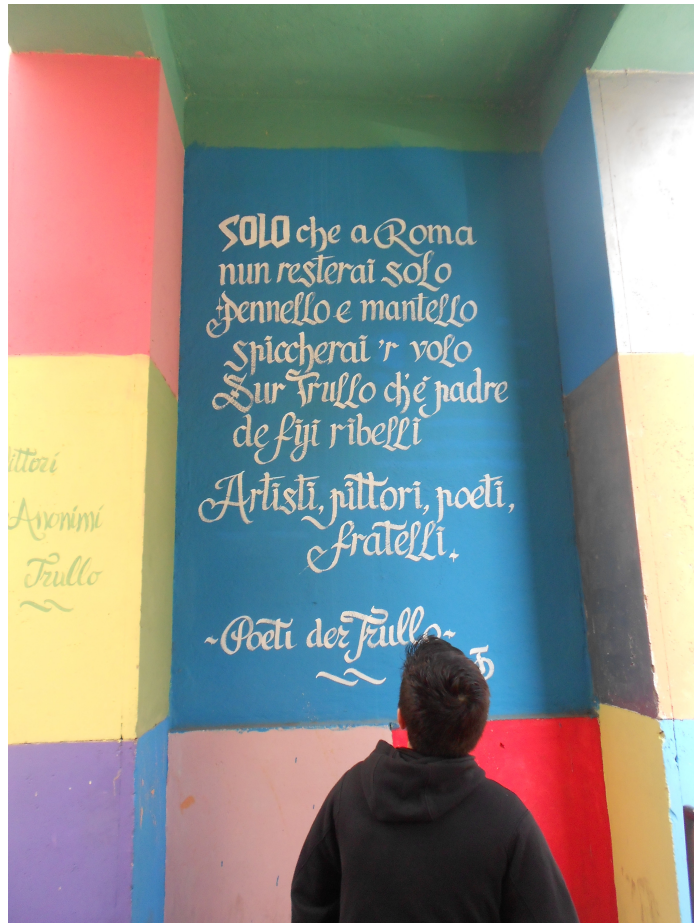 SOLO che a Roma
nun resterai solo
Pennello e mantello
spiccherai 'r volo
Sur Trullo ch'è padre
de fiji ribelli
Artisti, pittori, poeti,
fratelli.
~Poeti der Trullo~
Pittori
Anonimi
Trullo